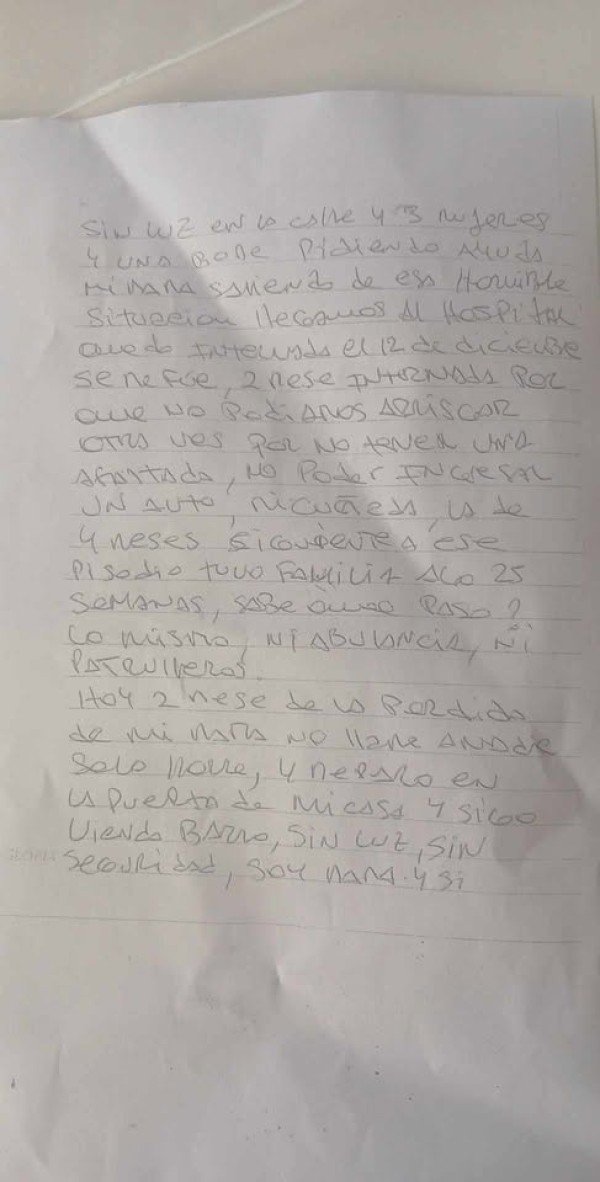 SiN LUZ en la calle y 3 mujeres
y una BeBe Pidiendo AYUDA
Mi MAMA SALIENDO de esa Horrible
Situacion llegamos Al Hospital
quedo INTERNADA el 12 de diciembre
se ne fue, 2 mese INTERNADA POR
que NO Podiamos ARRISCAR
OTRA ves por NO tener UNA
, NO Poder INGRESAR
UN auto, , la de
4 meses siguiente A ese
Pisodio tuvo FAMILIA ALGO 25
SEMANAS, SABE que PASO?
Lo mismo, Ni ABULANCIA, Ni
PATRULLEROS.
Hoy 2 mese de la Perdida
de mi MAMA NO llame ANADIE
Solo llore, y me PARO en
la PUERTA de mi casa y sigo
Viendo BARRO, SiN LUZ, SiN
SEGURIDAD, SOY MAMA. y si